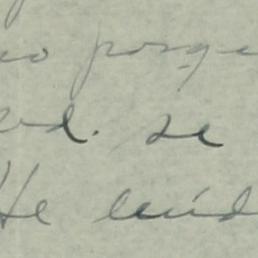 no porque
Ud. se
He leíd